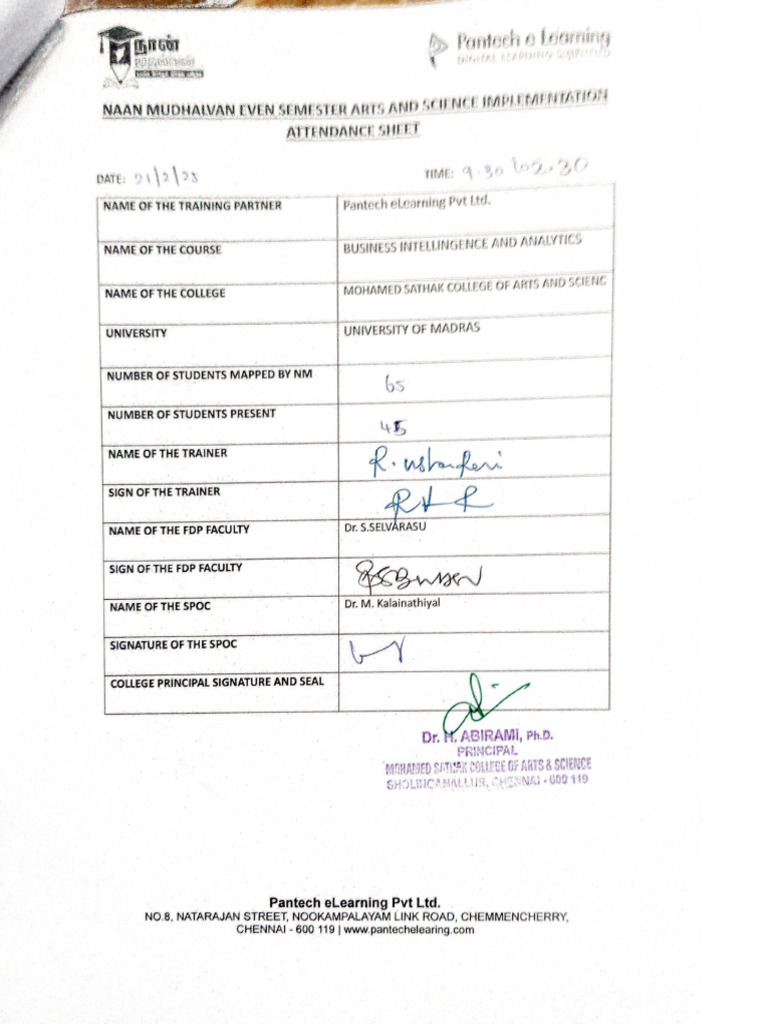 நான்
Pantech e Learning
DIGITAL LEARNING SIMPLIFIED
NAAN MUDHALVAN EVEN SEMESTER ARTS AND SCIENCE IMPLEMENTATION
ATTENDANCE SHEET
DATE: 21/2/25 TIME: 9.30 to 2.30
NAME OF THE TRAINING PARTNER Pantech eLearning Pvt Ltd.
NAME OF THE COURSE BUSINESS INTELLINGENCE AND ANALYTICS
NAME OF THE COLLEGE MOHAMED SATHAK COLLEGE OF ARTS AND SCIENC
UNIVERSITY UNIVERSITY OF MADRAS
NUMBER OF STUDENTS MAPPED BY NM 65
NUMBER OF STUDENTS PRESENT 45
NAME OF THE TRAINER R.
SIGN OF THE TRAINER
NAME OF THE FDP FACULTY Dr. S.SELVARASU
SIGN OF THE FDP FACULTY
NAME OF THE SPOC Dr. M. Kalainathiyal
SIGNATURE OF THE SPOC
COLLEGE PRINCIPAL SIGNATURE AND SEAL
Dr. H. ABIRAMI, Ph.D.
PRINCIPAL
MOHAMED SATHAK COLLEGE OF ARTS & SCIENCE
SHOLINGANALLUR, CHENNAI - 600 119
Pantech eLearning Pvt Ltd.
NO.8, NATARAJAN STREET, NOOKAMPALAYAM LINK ROAD, CHEMMENCHERRY,
CHENNAI - 600 119 | www.pantechelearing.com